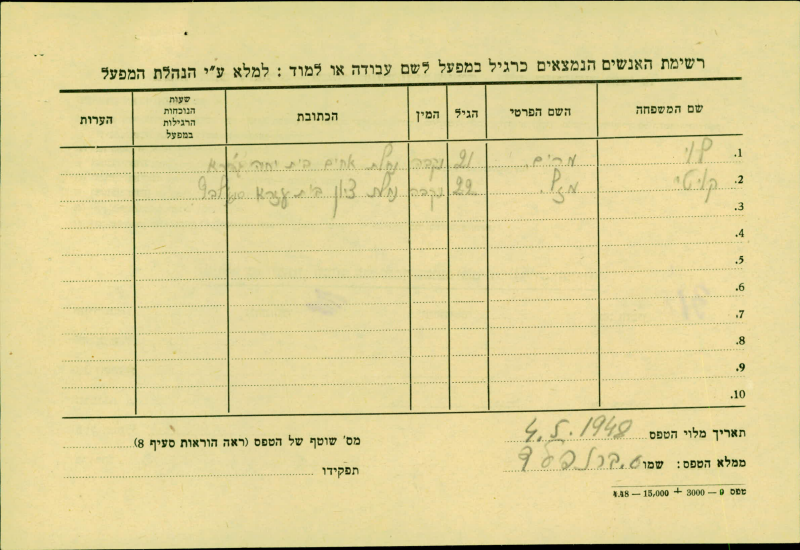 רשימת האנשים הנמצאים כרגיל במפעל לשם עבודה או למוד : למלא ע"י הנהלת המפעל
שם המשפחה השם הפרטי הגיל המין הכתובת שעות הנוכחות הרגילות במפעל הערות
1. לוי מרים. 21 נקבה נחלת אחים בית יחיא
2. מזל. 22 נקבה נחלת ציון בית עזרא
3.
4.
5.
6.
7.
8.
9.
10.
תאריך מלוי הטפס 4.5.1948
מס' שוטף של הטפס (ראה הוראות סעיף 8)
ממלא הטפס: שמו
תפקידו
טפס 9 — 3000 + 15,000 — 4.48